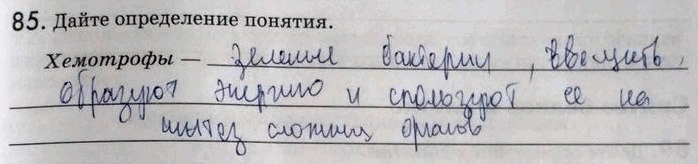 85. Дайте определение понятия.
Хемотрофы — зеленые бактерии,
образуют энергию и спользуют ее на
синтез сложних